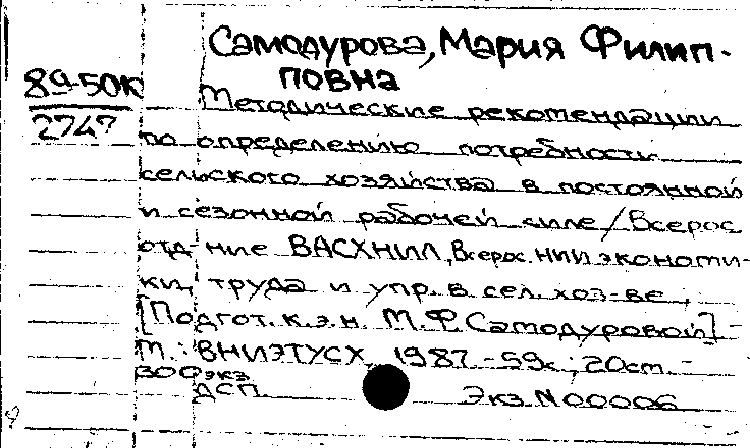 Самодурова, Мария Филип-
повна
8а-50к
2747
Методические рекомендации
по определению потребности
сельского хозяйства в постоянной
и сезонной рабочей силе / Всерос.
отд-ние ВАСХНИЛ, Всерос. НИИ экономи-
ки, труда и упр. в сел. хоз-ве ;
[Подгот. к.э.н. М.Ф. Самодуровой]. -
М. : ВНИЭТУСХ, 1987. - 59с. ; 20см. -
300 экз.
ДСП Экз. N 00006